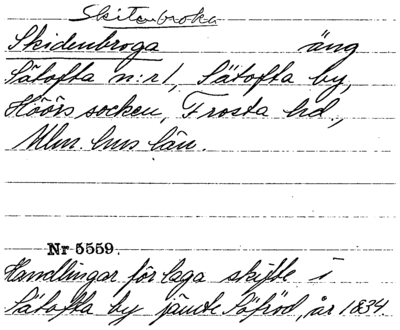 Skitenbroka
Skidenbroga äng
Sätofta n:r 1, Sätofta by,
Höörs socken, Frosta hd.,
Mlm. hus län.
Nr 5559.
Handlingar för laga skifte i
Sätofta by jämte Söfröd, år 1834.